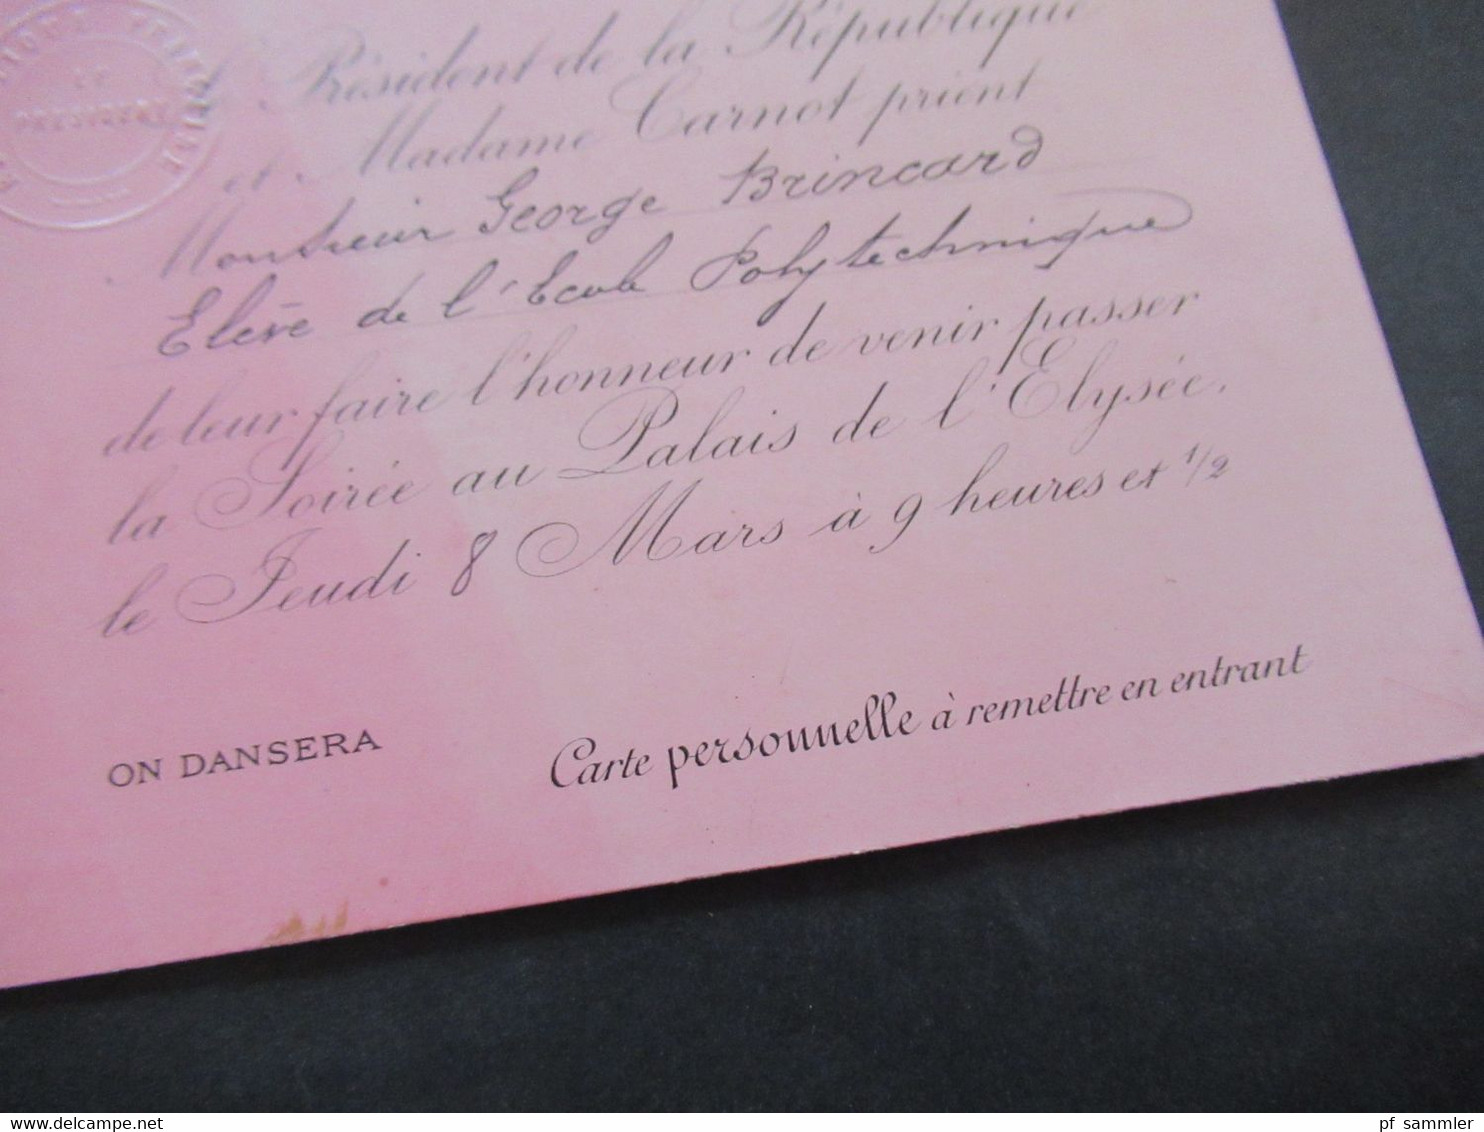 LE
PRESIDENT
Le Président de la République
et Madame Carnot prient
Monsieur George Brincard
Elève de l'Ecole Polytechnique
de leur faire l'honneur de venir passer
la Soirée au Palais de l'Elysée,
le Jeudi 8 Mars à 9 heures et 1/2
ON DANSERA
Carte personnelle à remettre en entrant
pf_sammler